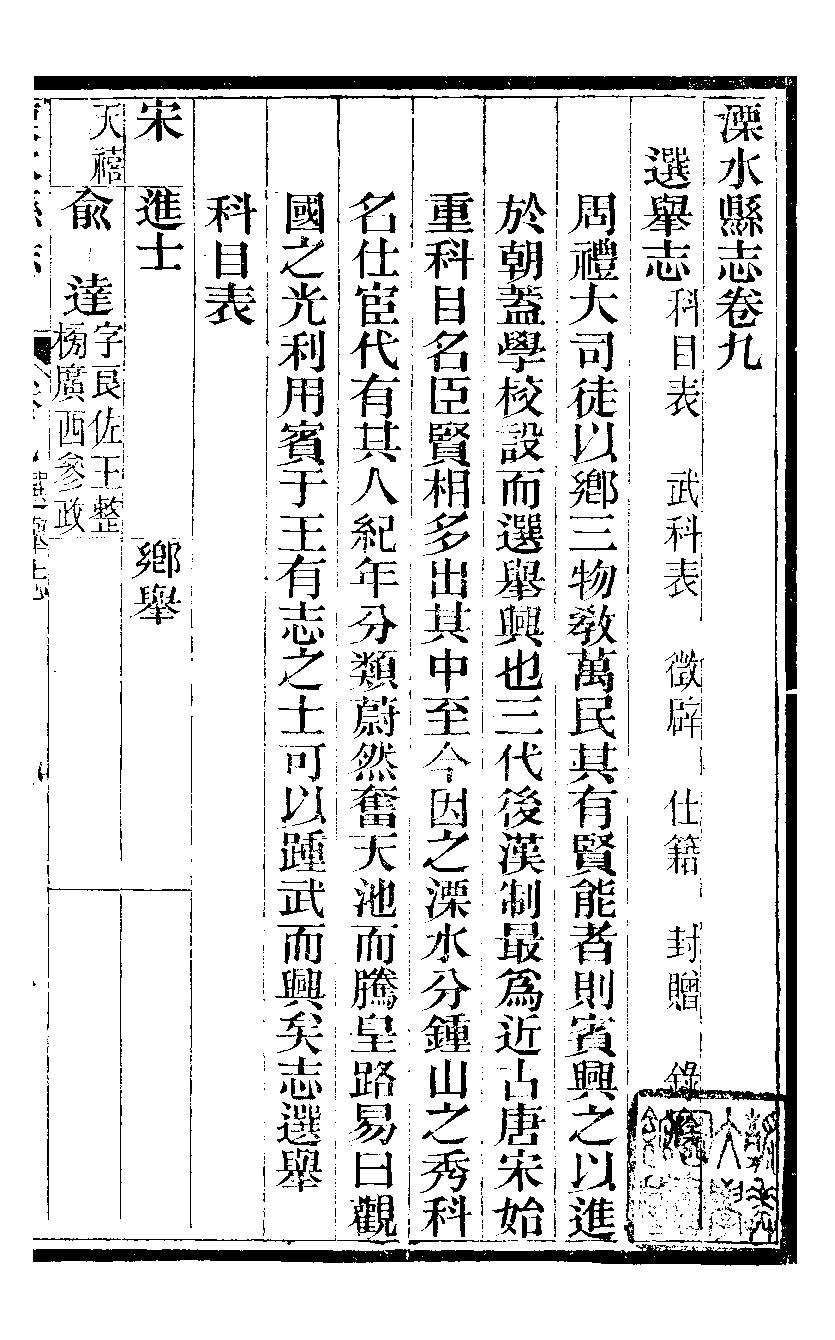 溧水縣志卷九
選舉志 科目表 武科表 徵辟 仕籍 封贈 錄
周禮大司徒以鄉三物敎萬民其有賢能者則賓興之以進
於朝蓋學校設而選舉興也三代後漢制最爲近古唐宋始
重科目名臣賢相多出其中至今因之溧水分鍾山之秀科
名仕宦代有其人紀年分類蔚然奮天池而騰皇路易曰觀
國之光利用賓于王有志之士可以踵武而興矣志選舉
科目表
宋 進士 鄉舉
天禧 俞達 字良佐王整
榜廣西參政